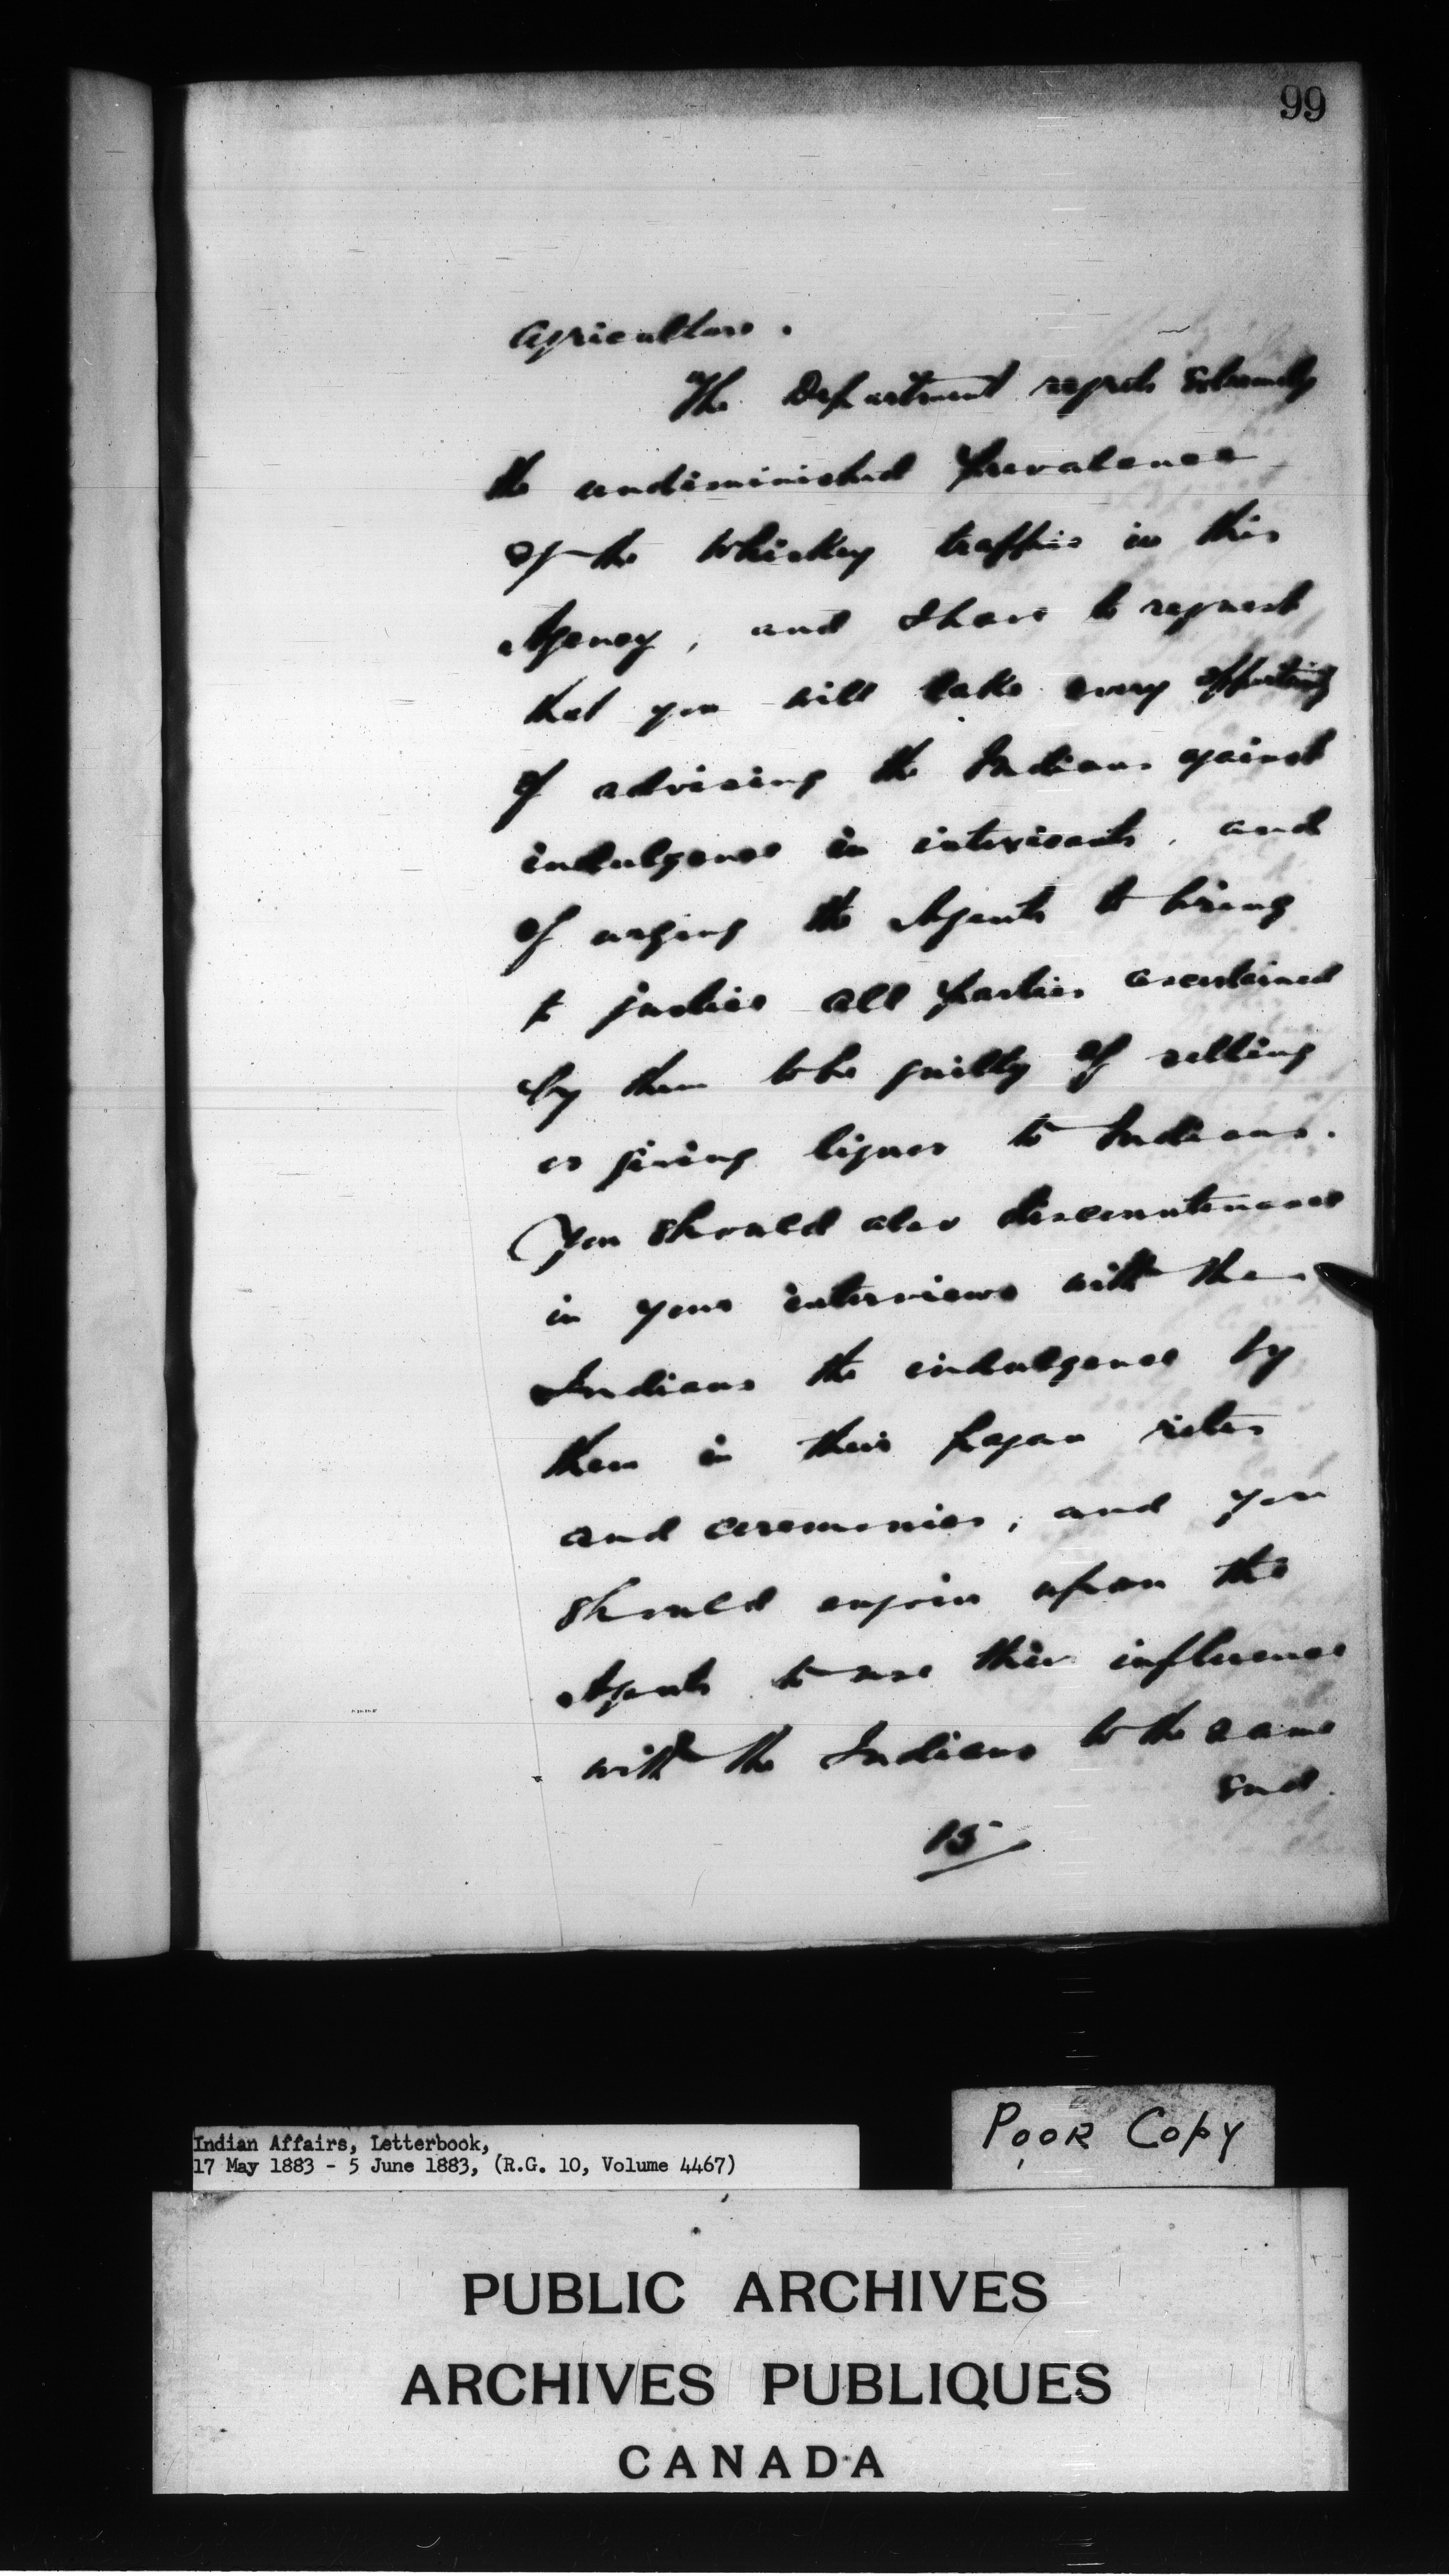 99
Agriculture.
The Department regrets extremely
the undiminished prevalence
of the Whiskey traffic in this
Agency, and I have to request
that you will take every opportunity
of advising the Indians against
indulgence in intoxicants, and
of urging the Agents to bring
to justice all parties ascertained
by them to be guilty of selling
or giving liquor to Indians.
You should also discountenance
in your interviews with the
Indians the indulgence by
them in their pagan rites
and ceremonies, and you
should enjoin upon the
Agents to use their influence
with the Indians to the same
end.
15
Indian Affairs, Letterbook,
17 May 1883 - 5 June 1883, (R.G. 10, Volume 4467)
POOR COPY
PUBLIC ARCHIVES
ARCHIVES PUBLIQUES
CANADA